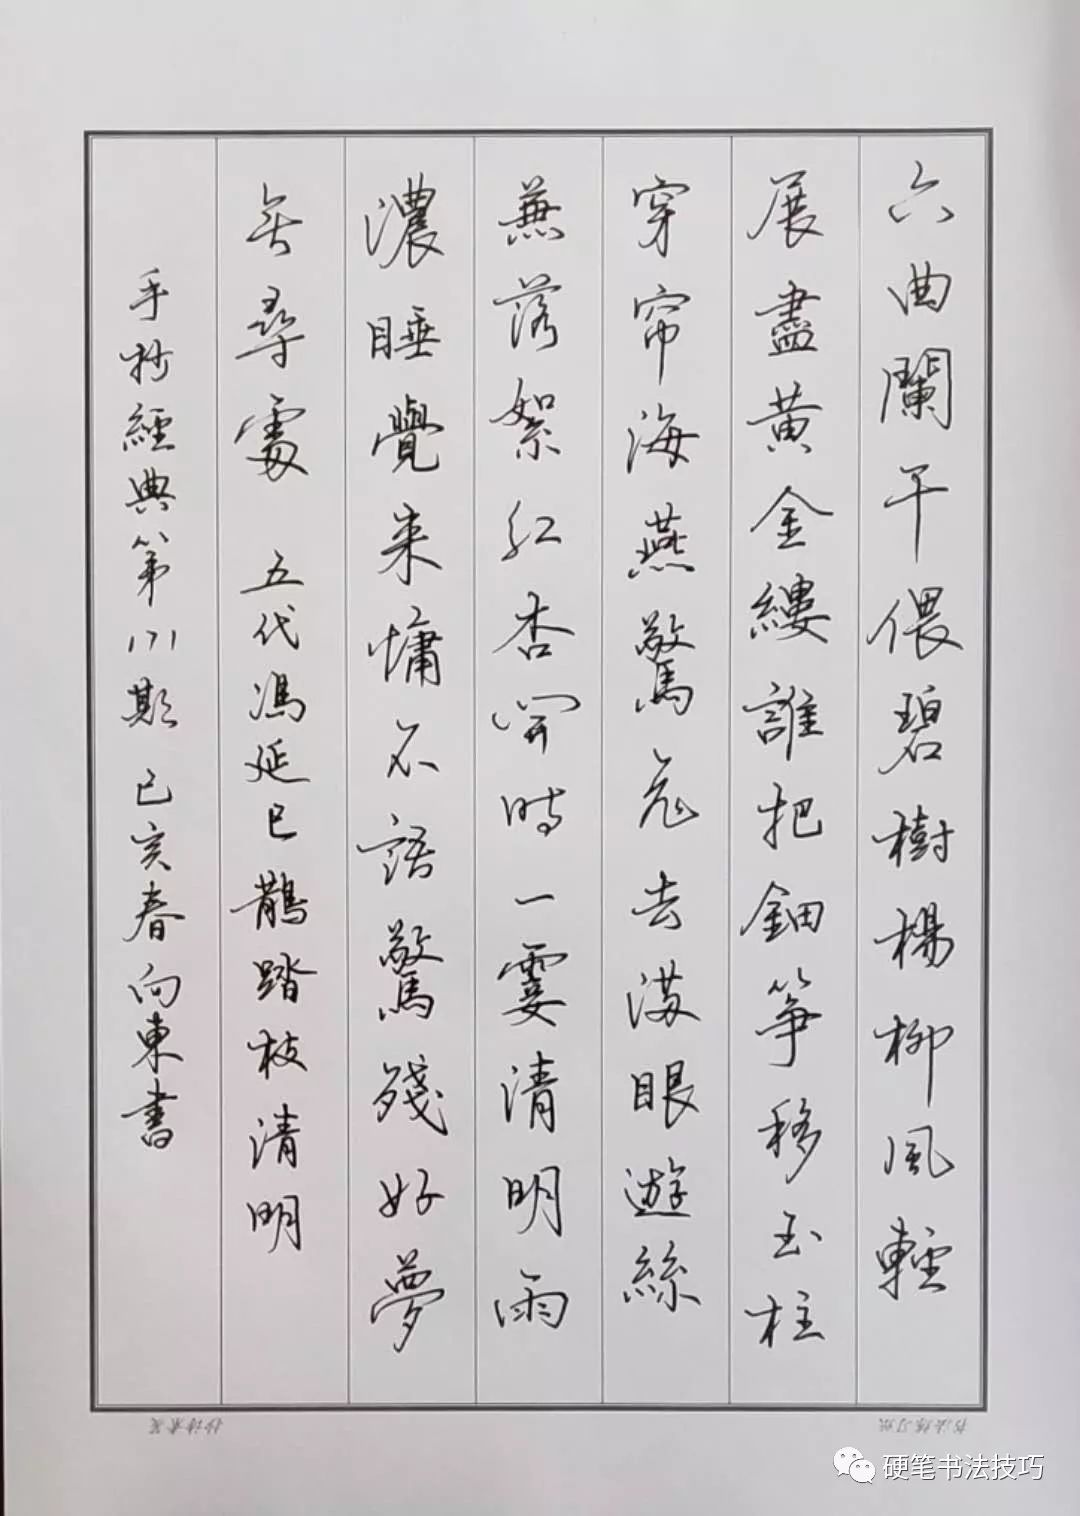 六曲闌干偎碧樹楊柳風輕
展盡黄金縷誰把鈿箏移玉柱
穿帘海燕驚飛去滿眼遊絲
兼落絮紅杏開時一霎清明雨
濃睡覺来慵不語驚殘好夢
無尋處 五代馮延巳鵲踏枝清明
手抄經典第171期 己亥春向東書
书法练习纸
硬笔书法技巧